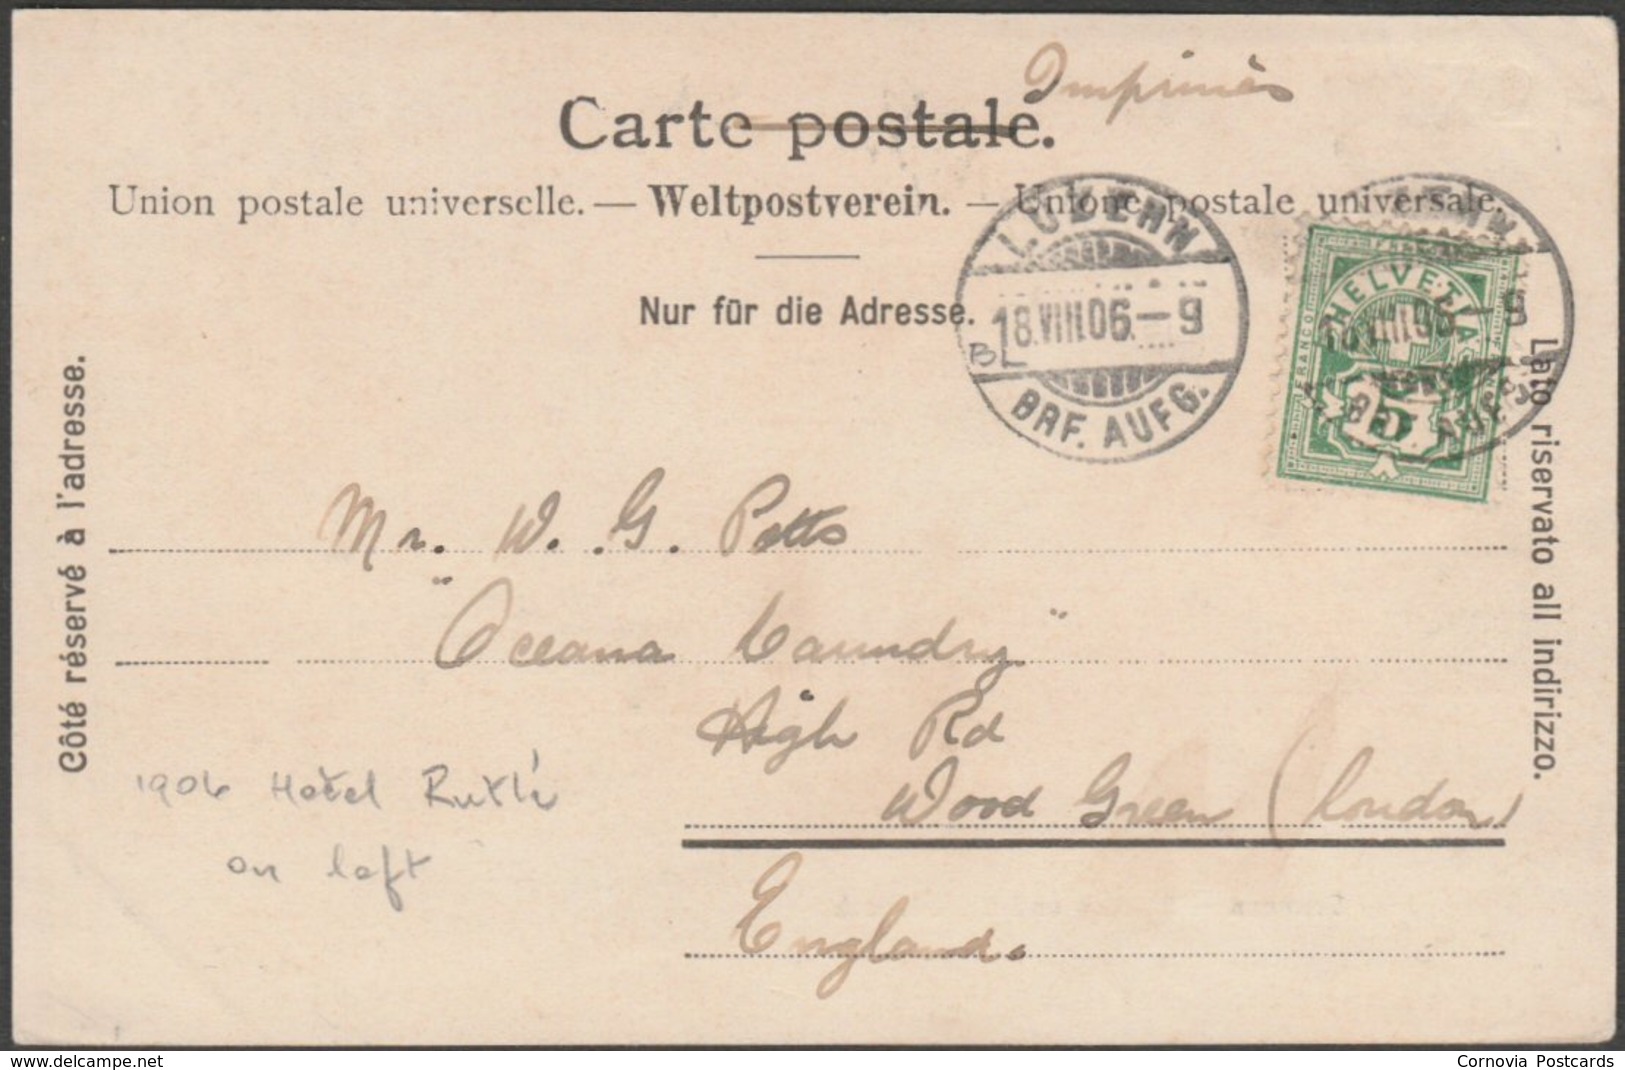 Imprimés
Carte postale.
Union postale universelle. — Weltpostverein. — Unione postale universale.
Nur für die Adresse.
LUZERN
18.VIII.06.-9
BRF. AUFG.
HELVETIA
FRANCO
5
Côté réservé à l'adresse.
Lato riservato all indirizzo.
Mr. W. G. Potts
"Oceana Laundry"
High Rd
Wood Green (London)
England.
1906 Hotel Rutli
on left
delcampe.net
Cornovia Postcards